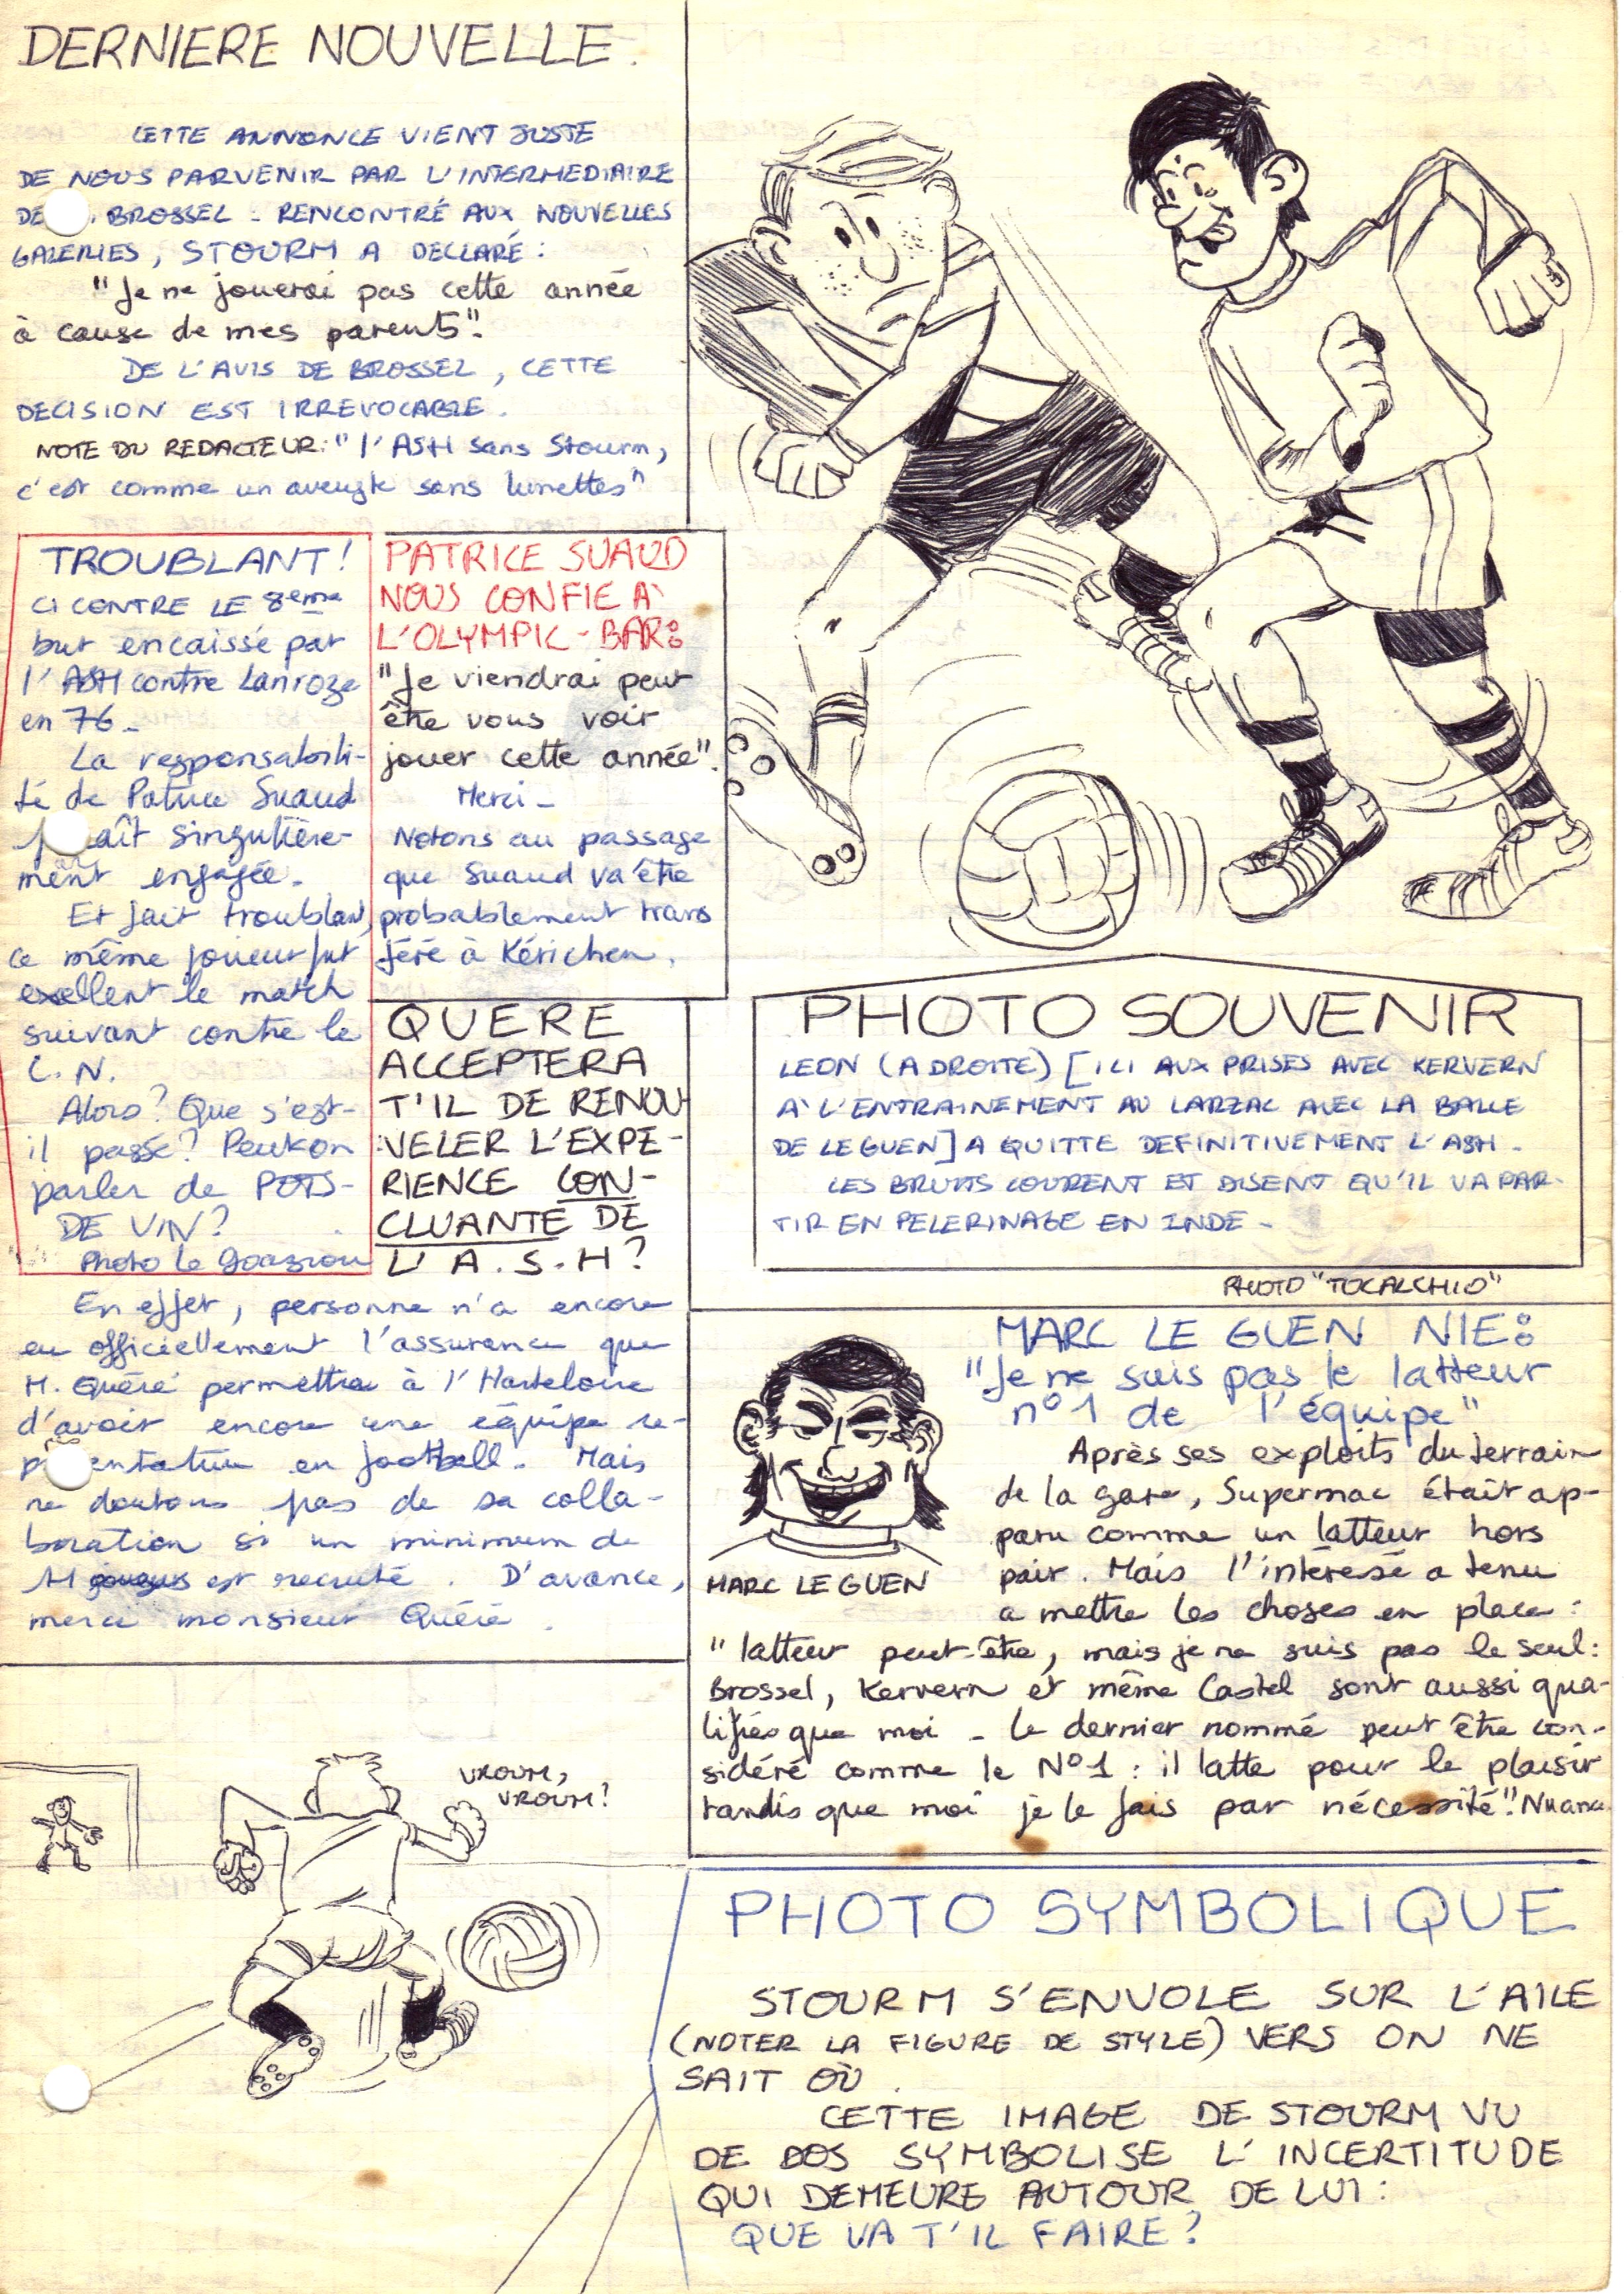 DERNIERE NOUVELLE.
CETTE ANNONCE VIENT JUSTE
DE NOUS PARVENIR PAR L'INTERMEDIAIRE
DE BROSSEL - RENCONTRÉ AUX NOUVELLES
GALERIES, STOURM A DECLARÉ :
"Je ne jouerai pas cette année
à cause de mes parents".
DE L'AVIS DE BROSSEL, CETTE
DECISION EST IRREVOCABLE.
NOTE DU REDACTEUR: "l'ASH sans Stourm,
c'est comme un aveugle sans lunettes"
TROUBLANT!
CI CONTRE LE 8eme
but encaissé par
l'ASH contre Lanroze
en 76 -
La responsabili-
té de Patrice Suaud
paraît singulière-
ment engagée.
Et fait troublant,
ce même joueur fut
exellent le match
suivant contre le
C.N.
Alors? Que s'est-
il passé? Peut on
parler de POTS-
DE VIN?
Photo Le Goasziou
PATRICE SUAUD
NOUS CONFIE A
L'OLYMPIC-BAR:
"Je viendrai peut
être vous voir
jouer cette année".
Merci -
Notons au passage
que Suaud va être
probablement trans
féré à Kérichen.
QUERE
ACCEPTERA
T'IL DE RENOU
VELER L'EXPE-
RIENCE CON-
CLUANTE DE
L'A.S.H?
En effet, personne n'a encore
eu officiellement l'assurance que
M. Quéré permettra à l'Harteloire
d'avoir encore une équipe re-
présentative en football. Mais
ne doutons pas de sa colla-
boration si un minimum de
11 joueurs est recruté. D'avance,
merci monsieur Quéré.
PHOTO SOUVENIR
LEON (A DROITE) [ICI AUX PRISES AVEC KERVERN
A L'ENTRAINEMENT AU LARZAC AVEC LA BALLE
DE LE GUEN] A QUITTE DEFINITIVEMENT L'ASH -
LES BRUITS COURENT ET DISENT QU'IL VA PAR-
TIR EN PELERINAGE EN INDE -
PHOTO "TOCALCHIO"
MARC LE GUEN NIE:
"Je ne suis pas le latteur
n°1 de l'équipe"
Après ses exploits du terrain
de la gare, Supermac était ap-
paru comme un latteur hors
pair. Mais l'intéressé a tenu
a mettre les choses en place :
"latteur peut-être, mais je ne suis pas le seul:
Brossel, Kervern et même Castel sont aussi qua-
lifiés que moi - Le dernier nommé peut être con-
sidéré comme le N°1 : il latte pour le plaisir
tandis que moi je le fais par nécessité". Nuance
MARC LE GUEN
VROUM,
VROUM!
PHOTO SYMBOLIQUE
STOURM S'ENVOLE SUR L'AILE
(NOTER LA FIGURE DE STYLE) VERS ON NE
SAIT OÙ.
CETTE IMAGE DE STOURM VU
DE DOS SYMBOLISE L'INCERTITUDE
QUI DEMEURE AUTOUR DE LUI :
QUE VA T'IL FAIRE?